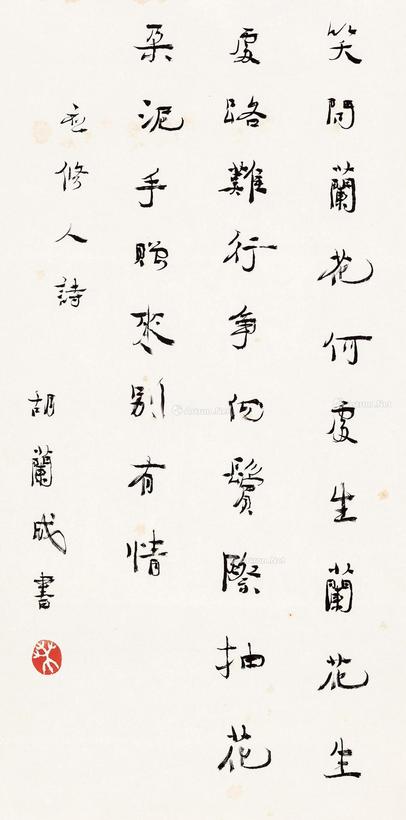 笑問蘭花何處生蘭花生
處路難行争向鬢際抽花
朶泥手贈來別有情
応修人詩
胡蘭成書
Artron.Net